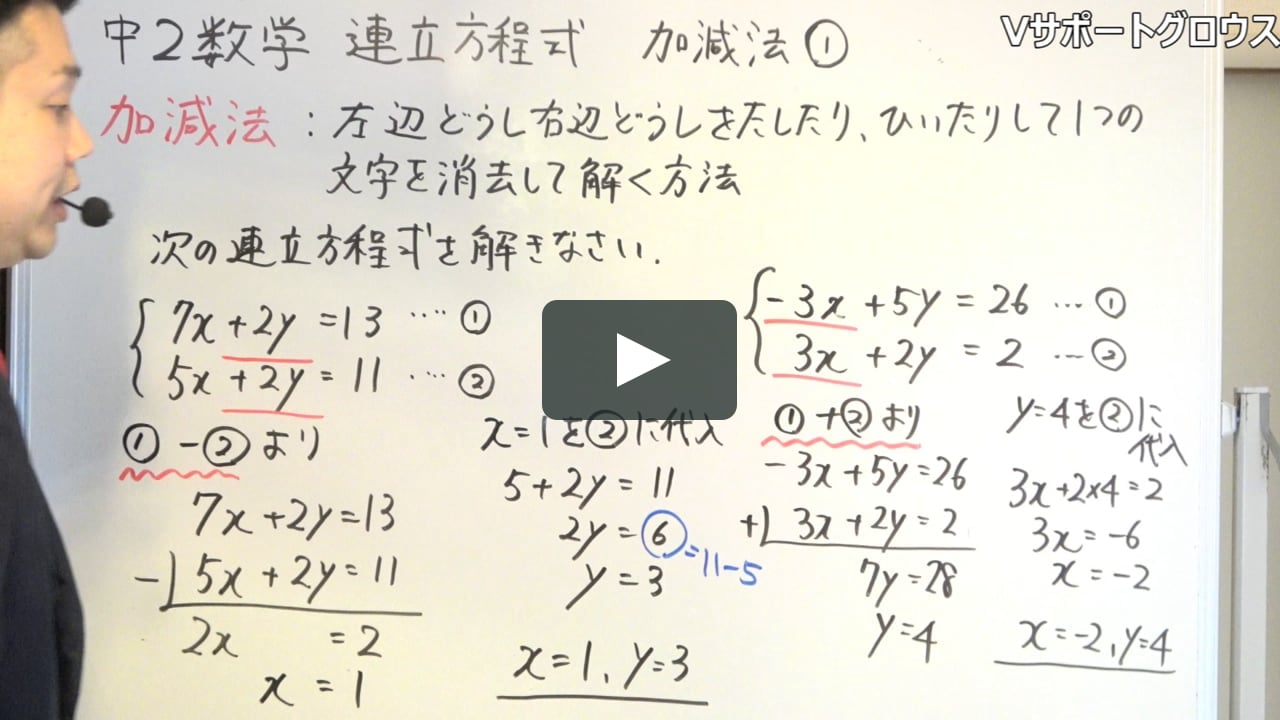 Vサポートグロウス
中2数学 連立方程式 加減法①
加減法:左辺どうし右辺どうしをたしたり、ひいたりして1つの
文字を消去して解く方法
次の連立方程式を解きなさい.
7x+2y=13 ‥‥ ①
5x+2y=11 ‥‥ ②
①-②より
7x+2y=13
-) 5x+2y=11
2x =2
x=1
x=1を②に代入
5+2y=11
2y=6
=11-5
y=3
x=1, y=3
-3x+5y=26 … ①
3x+2y=2 … ②
①+②より
-3x+5y=26
+) 3x+2y=2
7y=28
y=4
y=4を②に
代入
3x+2×4=2
3x=-6
x=-2
x=-2, y=4